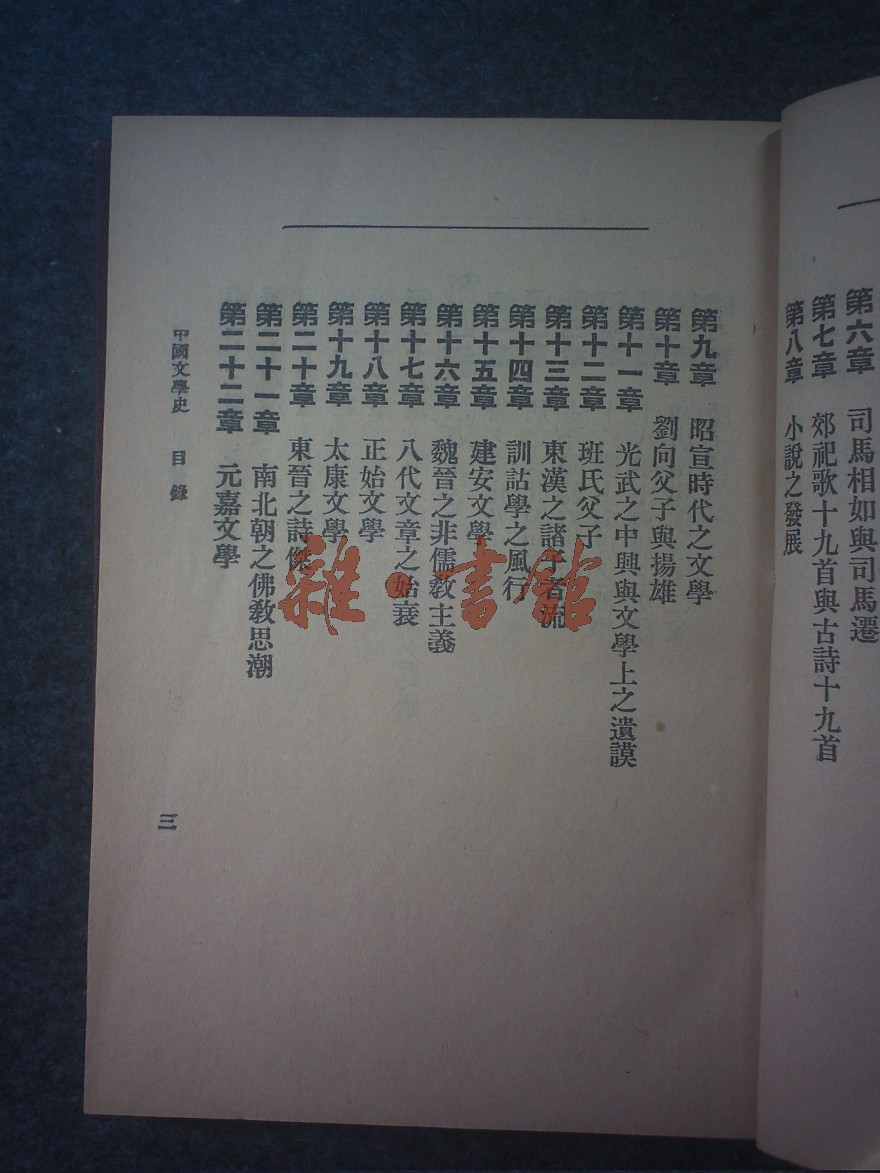 第六章 司馬相如與司馬遷
第七章 郊祀歌十九首與古詩十九首
第八章 小說之發展
第九章 昭宣時代之文學
第十章 劉向父子與揚雄
第十一章 光武之中興與文學上之遺謨
第十二章 班氏父子
第十三章 東漢之諸子者流
第十四章 訓詁學之風行
第十五章 建安文學
第十六章 魏晉之非儒教主義
第十七章 八代文章之始衰
第十八章 正始文學
第十九章 太康文學
第二十章 東晉之詩傑
第二十一章 南北朝之佛教思潮
第二十二章 元嘉文學
中國文學史 目錄
三
雜·書館